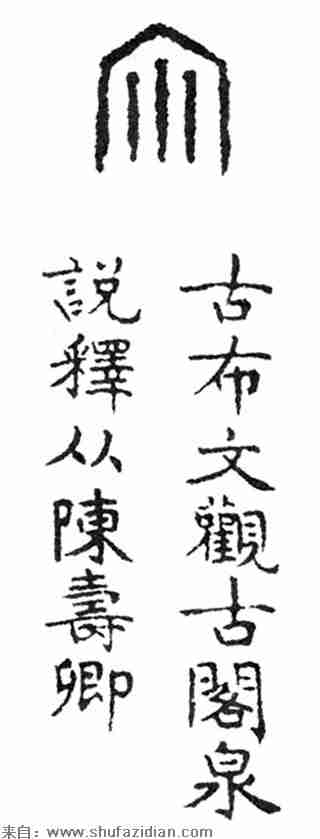 古布文觀古閣泉
說釋从陳壽卿
来自：www.shufazidian.com